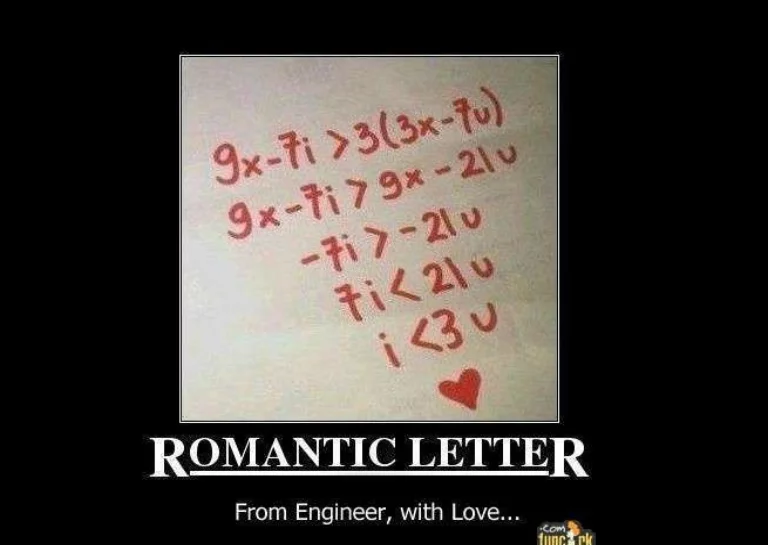 9x-7i > 3(3x-7u)
9x-7i > 9x-21u
-7i > -21u
7i < 21u
i <3 u
ROMANTIC LETTER
From Engineer, with Love...
.com